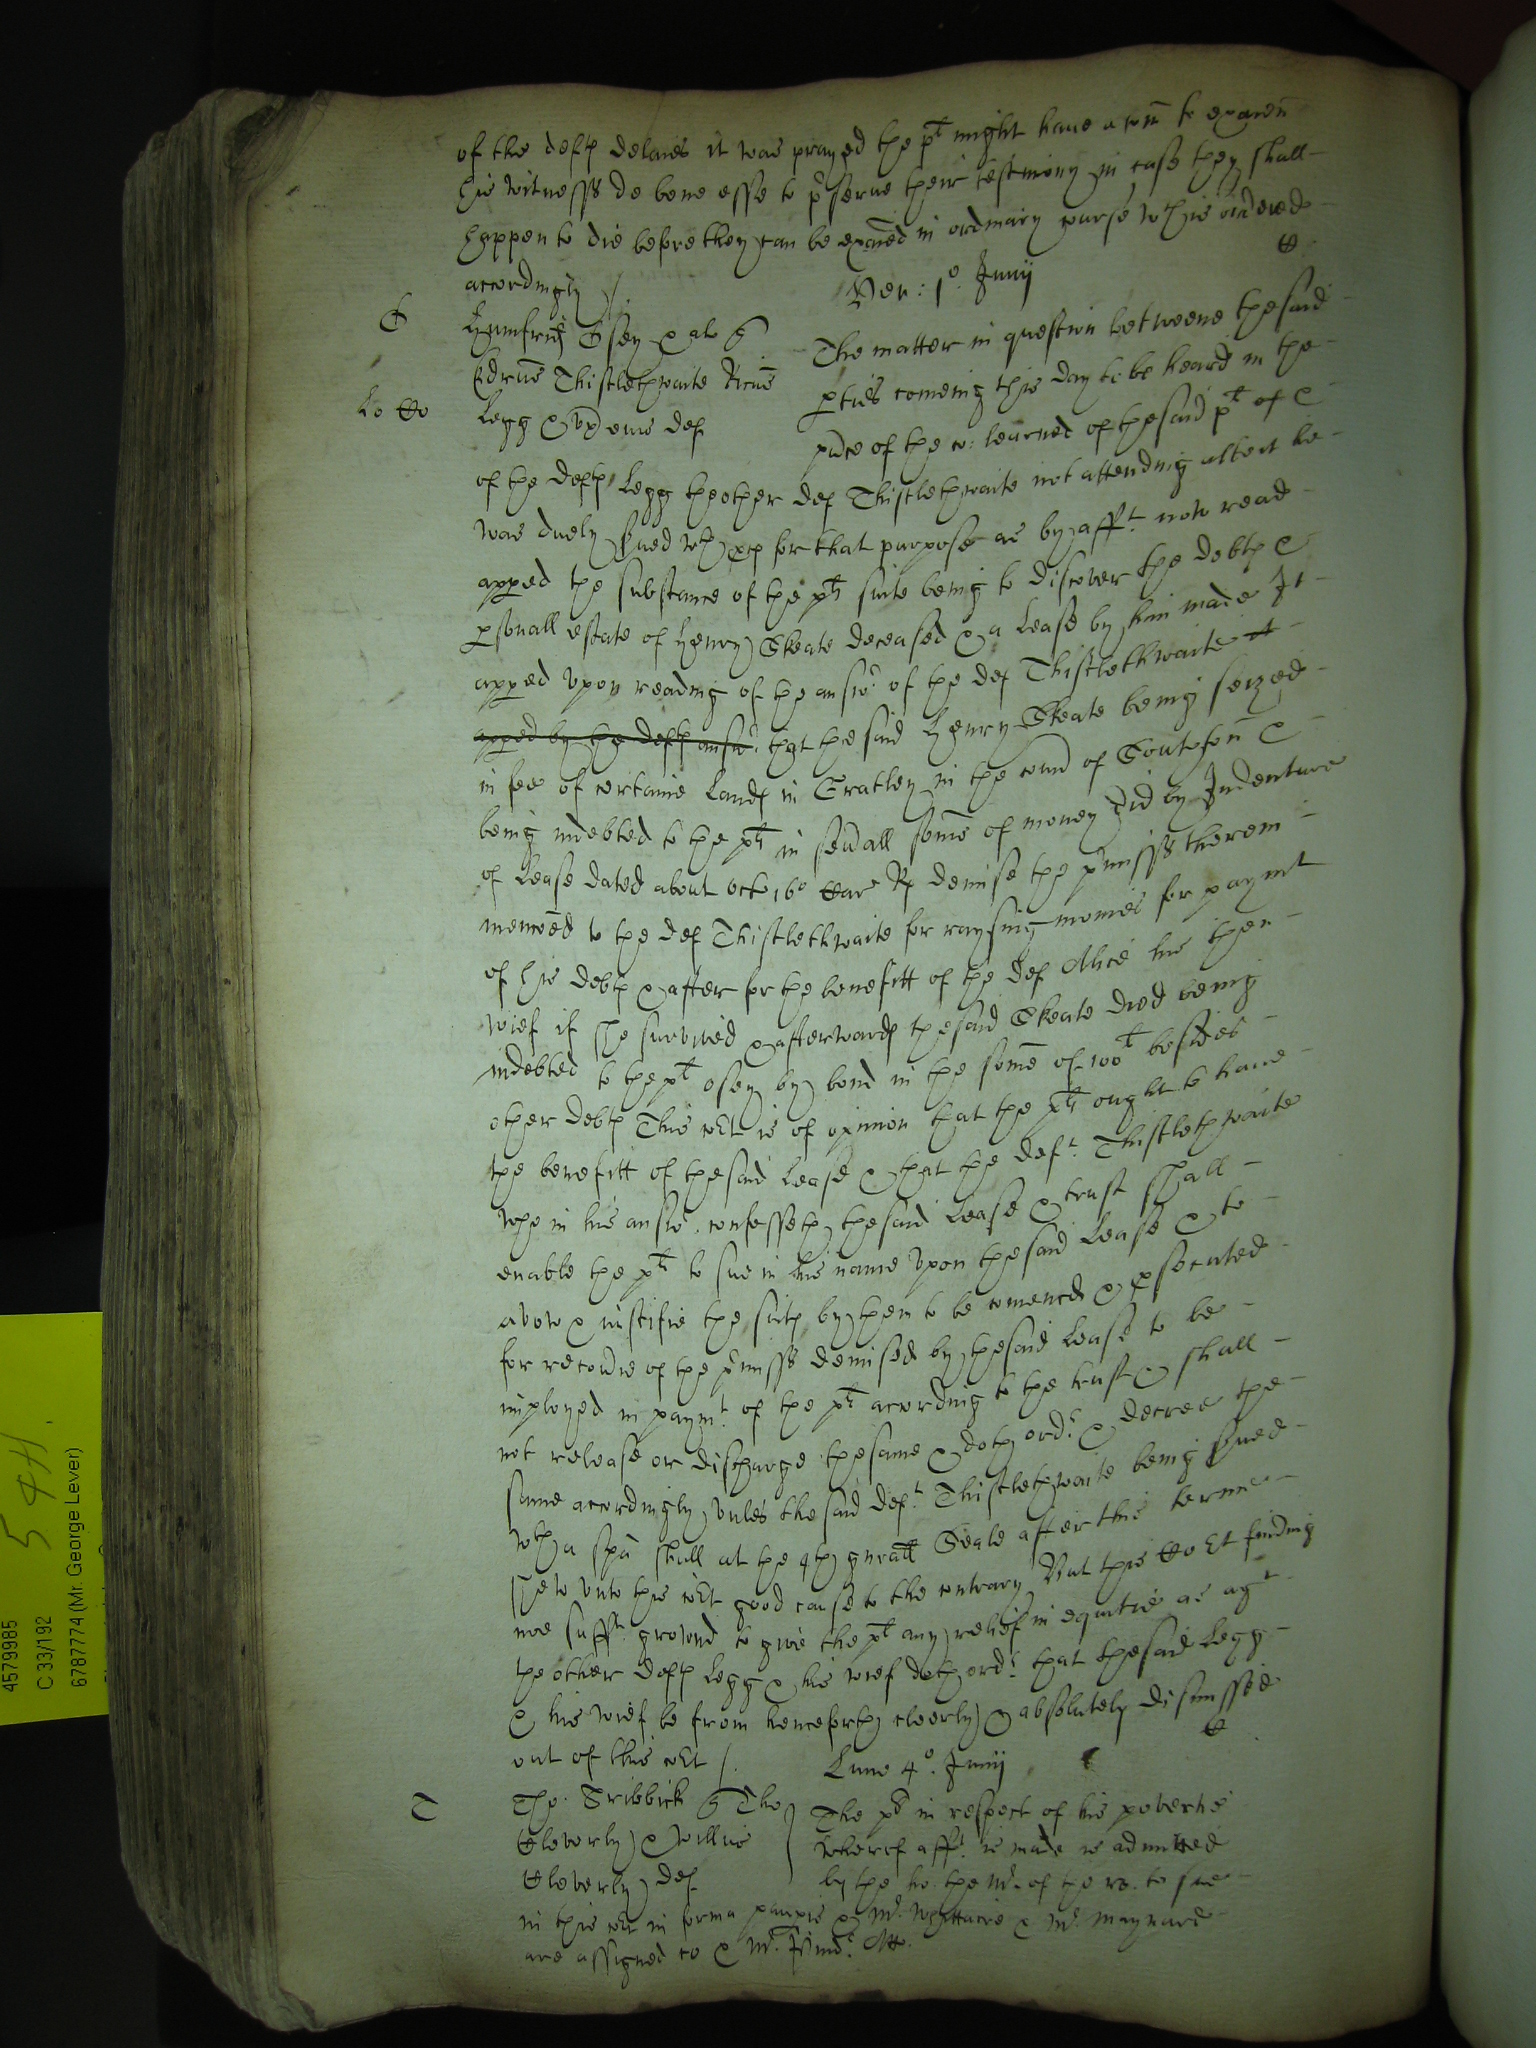 of the deftes delaies it was prayed the plt might have a com to examin
his witnesses de bene esse to pserve their testimony in case they shall
happen to die before they can be examed in ordinary course wch is ordered
accordingly /
Ven: 1º Junij
Humfrid Osey & al
Edrus Thistlethwaite Ricus
Legg & ux eius def
The matter in question betweene the said
pties coming this day to be heard in the
pnce of the co: learned of the said plt &
of the deft Legg the other def Thistlethwaite not attending albeit he
was duely served wth pces for that purpose as by afft now read
apped the substance of the plts suite being to discover the debtes &
psonall estate of Henry Skeate deceased & a Lease by him made It
apped upon reading of the answr of the def Thistlethwaite
apped by the deftes answr that the said Henry Skeate being seized
in fee of certaine Landes in Gratley in the coun of Southton &
being indebted to the plts in severall somes of money did by Indenture
of Lease dated about Octo 16º Car Rs demise the pmisses therein
menconed to the def Thistlethwaite for raysing monies for paymt
of his debtes & after for the benefitt of the def Alice his then
wief if she survived & afterwardes the said Skeate died being
indebted to the plt Osey by bond in the some of 100l besides
other debtes This cort is of opinion that the plts ought to have
the benefitt of the said Lease & that the deft Thistlethwaite
who in his answ. confesseth the said Lease & trust shall
enable the plts to sue in his name upon the said Lease & to
avow & iustifie the suites by them to be comenced & psecuted
for recoverie of the pmisses demised by the said Lease to be
imployed in paymt of the plts according to the trust & shall
not release or discharge the same & doth ordr & decree the
same accordingly unles the said deft Thistlethwaite being served
wth a spa shall at the 4th gnrall Seale after this terme
shew unto this cort good cause to the contrary But this cort finding
noe sufft ground to give the plt any relief in equitie as agt
the other deftes Legg & his wief doth ordr that the said Legg
& his wief be from henceforth cleerly & absolutely dismissed
out of this cort /.
Lune 4º. Junij
T
Tho. Gribbick Tho
Cleverly & Willus
Cleverly def
The plt in respect of his povertie
wherof afft is made is admitted
by the ho. the Mr. of the ro. to sue
in this cort in forma paupis & Mr. Whittacre & Mr. Maynard
are assigned co & Mr. Atto.
4579985
C 33/192
6787774 (Mr. George Lever)